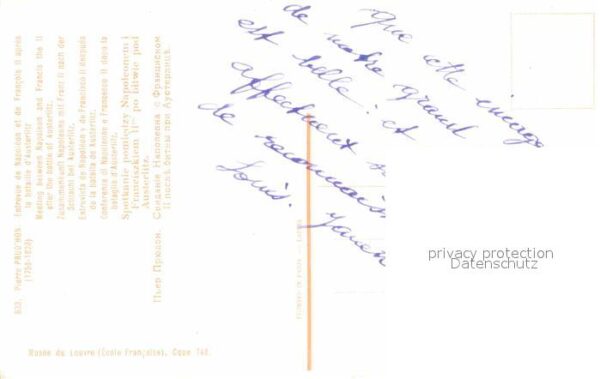 833. Pierre PRUD'HON (1758-1823)
Entrevue de Napoléon et de François II après
la bataille d'Austerlitz.
Meeting between Napoleon and Francis the II
after the battle of Austerlitz.
Zusammenkunft Napoleons mit Franz II nach der
Schlacht bei Austerlitz.
Entrevista de Napoleón y de Francisco II después
de la batalla de Austerlitz.
Conferenza di Napoleone e Francesco II dopo la
battaglia d'Austerlitz.
Spotkanie pomiędzy Napoleonem i
Franciszkiem II-m po bitwie pod
Austerlitz.
Пьер Прюдон. Свидание Наполеона с Францискомъ
II послѣ битвы при Аустерлицѣ.
Musée du Louvre (École Française), Cope 140.
Que cette
de notre grand
est belle. et
affectueux
de
Louis.
privacy protection
Datenschutz